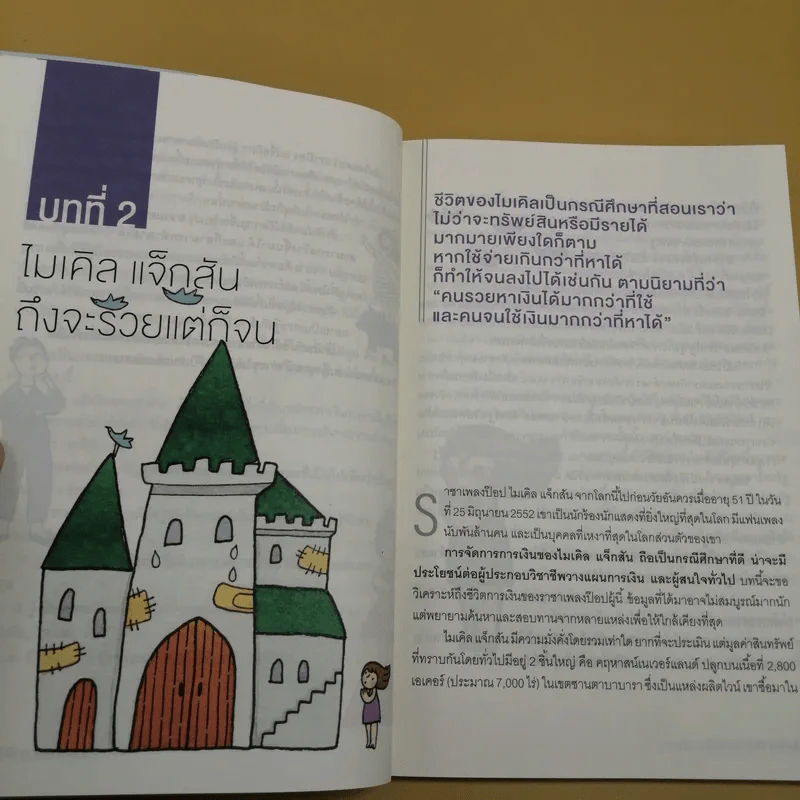 บทที่ 2
ไมเคิล แจ็กสัน
ถึงจะรวยแต่ก็จน
ชีวิตของไมเคิลเป็นกรณีศึกษาที่สอนเราว่า
ไม่ว่าจะทรัพย์สินหรือมีรายได้
มากมายเพียงใดก็ตาม
หากใช้จ่ายเกินกว่าที่หาได้
ก็ทำให้จนลงไปได้เช่นกัน ตามนิยามที่ว่า
“คนรวยหาเงินได้มากกว่าที่ใช้
และคนจนใช้เงินมากกว่าที่หาได้”
ราชาเพลงป๊อป ไมเคิล แจ็กสัน จากโลกนี้ไปก่อนวัยอันควรเมื่ออายุ 51 ปี ในวัน
ที่ 25 มิถุนายน 2552 เขาเป็นนักร้องนักแสดงที่ยิ่งใหญ่ที่สุดในโลก มีแฟนเพลง
นับพันล้านคน และเป็นบุคคลที่เหงาที่สุดในโลกส่วนตัวของเขา
การจัดการการเงินของไมเคิล แจ็กสัน ถือเป็นกรณีศึกษาที่ดี น่าจะมี
ประโยชน์ต่อผู้ประกอบวิชาชีพวางแผนการเงิน และผู้สนใจทั่วไป บทนี้จะขอ
วิเคราะห์ถึงชีวิตการเงินของราชาเพลงป๊อปผู้นี้ ข้อมูลที่ได้มาอาจไม่สมบูรณ์มากนัก
แต่พยายามค้นหาและสอบทานจากหลายแหล่งเพื่อให้ใกล้เคียงที่สุด
ไมเคิล แจ็กสัน มีความมั่งคั่งโดยรวมเท่าใด ยากที่จะประเมิน แต่มูลค่าสินทรัพย์
ที่ทราบกันโดยทั่วไปมีอยู่ 2 ชิ้นใหญ่ คือ คฤหาสน์เนเวอร์แลนด์ ปลูกบนเนื้อที่ 2,800
เอเคอร์ (ประมาณ 7,000 ไร่) ในเขตซานตาบาบารา ซึ่งเป็นแหล่งผลิตไวน์ เขาซื้อมาใน